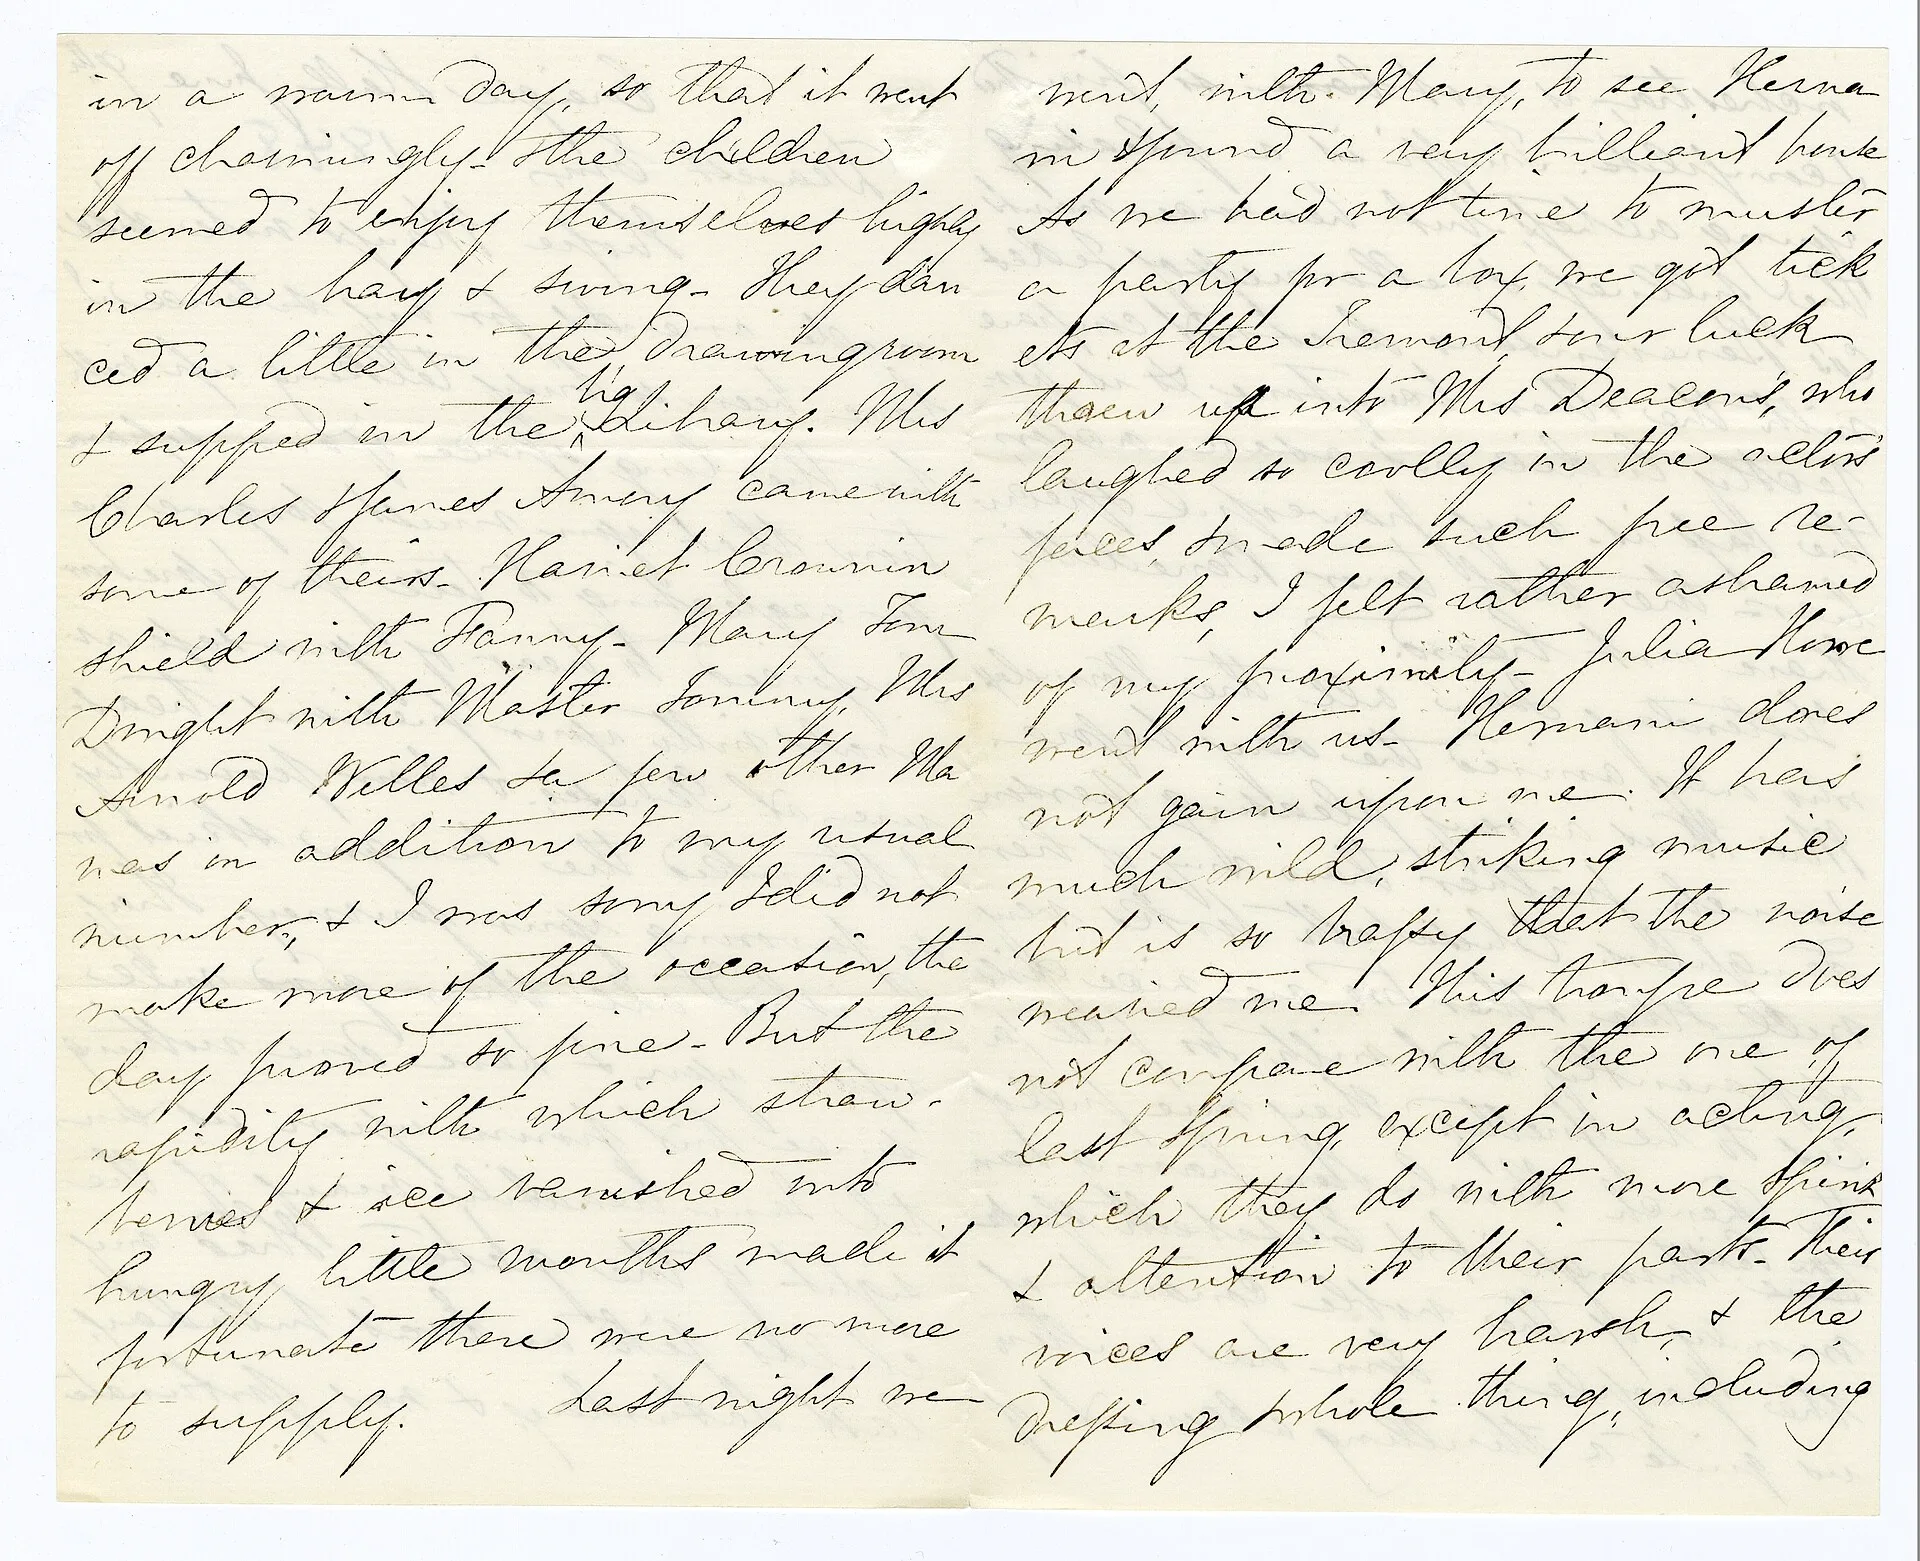 in a warm day, so that it went
off charmingly - & the children
seemed to enjoy themselves highly
in the hay & swing - They dan
ced a little in the drawingroom
& supped in the big library. Mrs
Charles & James Amory came with
some of theirs - Harriet Crownin
shield with Fanny - Mary Tom
Dwight with Master Tommy, Mrs
Arnold Welles & a few other Ma
mas in addition to my usual
number, & I was sorry I did not
make more of the occasion, the
day proved so fine - But the
rapidity with which straw-
berries & ice vanished into
hungry little mouths made it
fortunate there were no more
to supply. Last night we
went, with Mary, to see Herna
ni & found a very brilliant house
As we had not time to muster
a party for a box, we got tick
ets at the Tremont, & our luck
threw us into Mrs Deacon's, who
laughed so coolly in the actors'
faces, & made such free re-
marks, I felt rather ashamed
of my proximity - Julia Howe
went with us - Hernani does
not gain upon me. It has
much wild, striking music
but is so brassy that the noise
wearied me. This troupe does
not compare with the one of
last spring, except in acting,
which they do with more spirit
& attention to their parts - Their
voices are very harsh, & the
dressing & whole thing, including